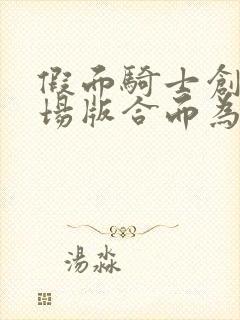 假而騎士創
場版合而為
湯淼